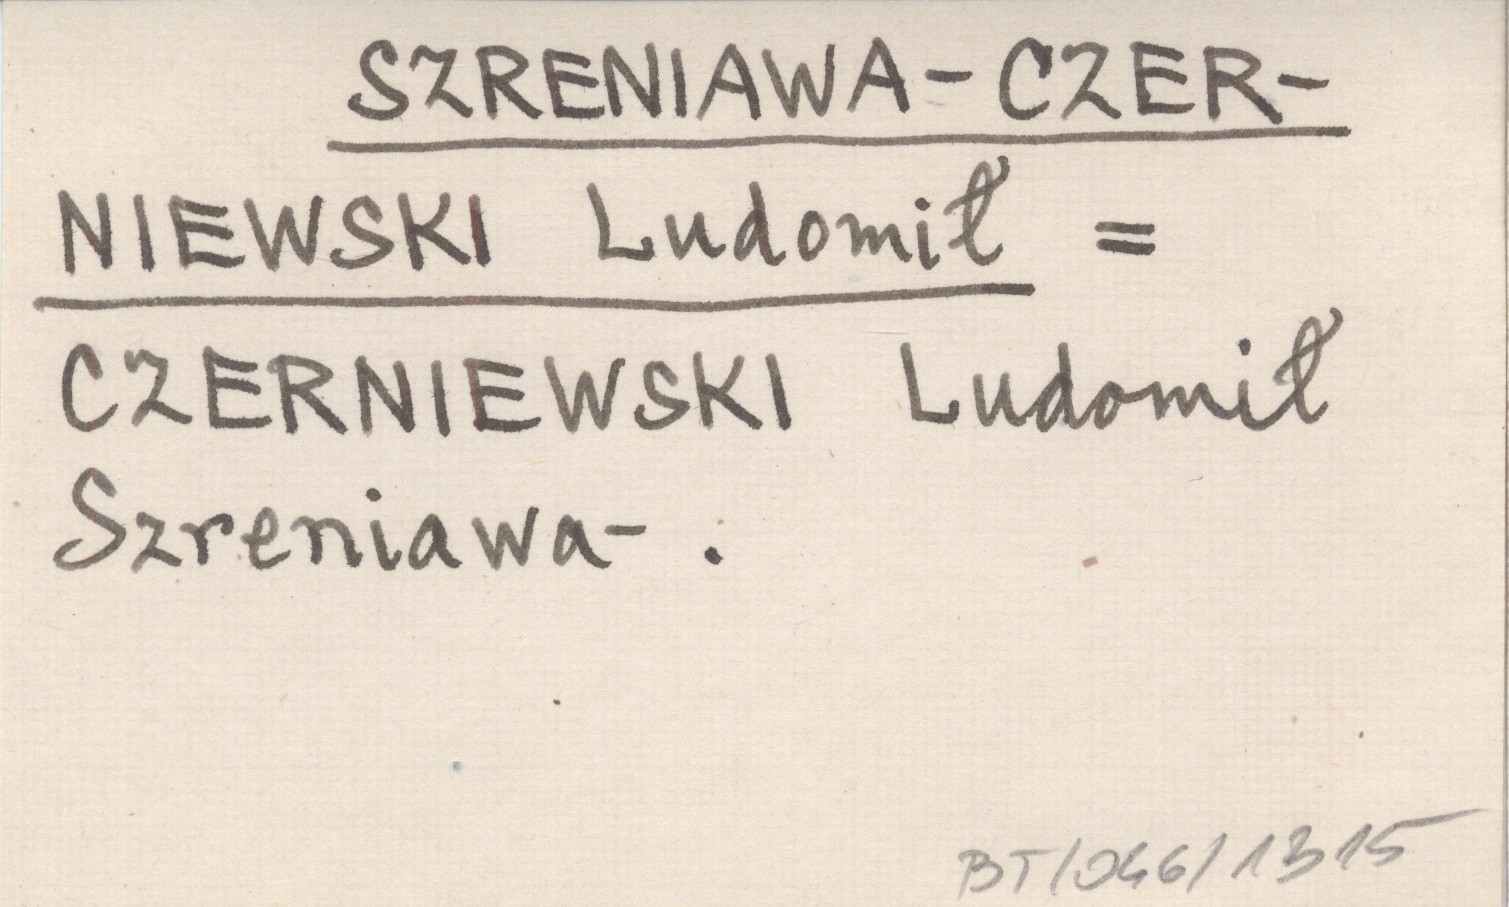 SZRENIAWA-CZER-
NIEWSKI Ludomił =
CZERNIEWSKI Ludomił
Szreniawa- .
BT/046/1315